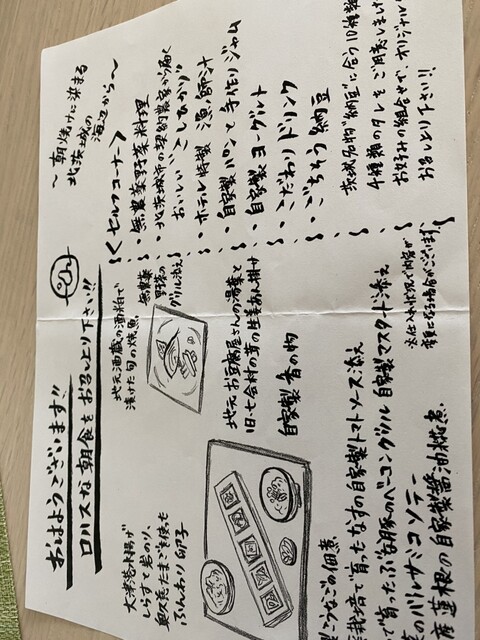 おはようございます!!
ロハスな朝食をお召し上り下さい!!
～朝焼けに染まる
北茨城の
海辺から～
大津港水揚げ
しらすと岩のり、
奥久慈たまごを使った
ふんわり卵子
地元酒蔵の酒粕で
漬けた旬の焼魚
無農薬
野菜の
グリル添え
地元お豆腐屋さんの湯葉と
旧・七会村の茸の生姜あん掛け
自家製 香の物
うなごの佃煮
栽培で育ったなすの自家製トマトソース添え
で育ったぶな豚のベーコングリル 自家製マスタード添え
のバルサミコソテー
産蓮根の自家製醤油糀煮
＜セルフコーナー＞
・無農薬野菜料理
・北茨城市の契約農家から届く
おいしい"こしひかり"
・ホテル特製 漁師汁
・自家製 パンと手作りジャム
・自家製 ヨーグルト
・こだわりドリンク
・ごちそう納豆
茨城名物"納豆"に合う10種類
4種類のタレをご用意しました
お好みの組合せで、オリジナル
お召し上り下さい!!
※仕入れ状況で内容が
変更になる場合がございます。